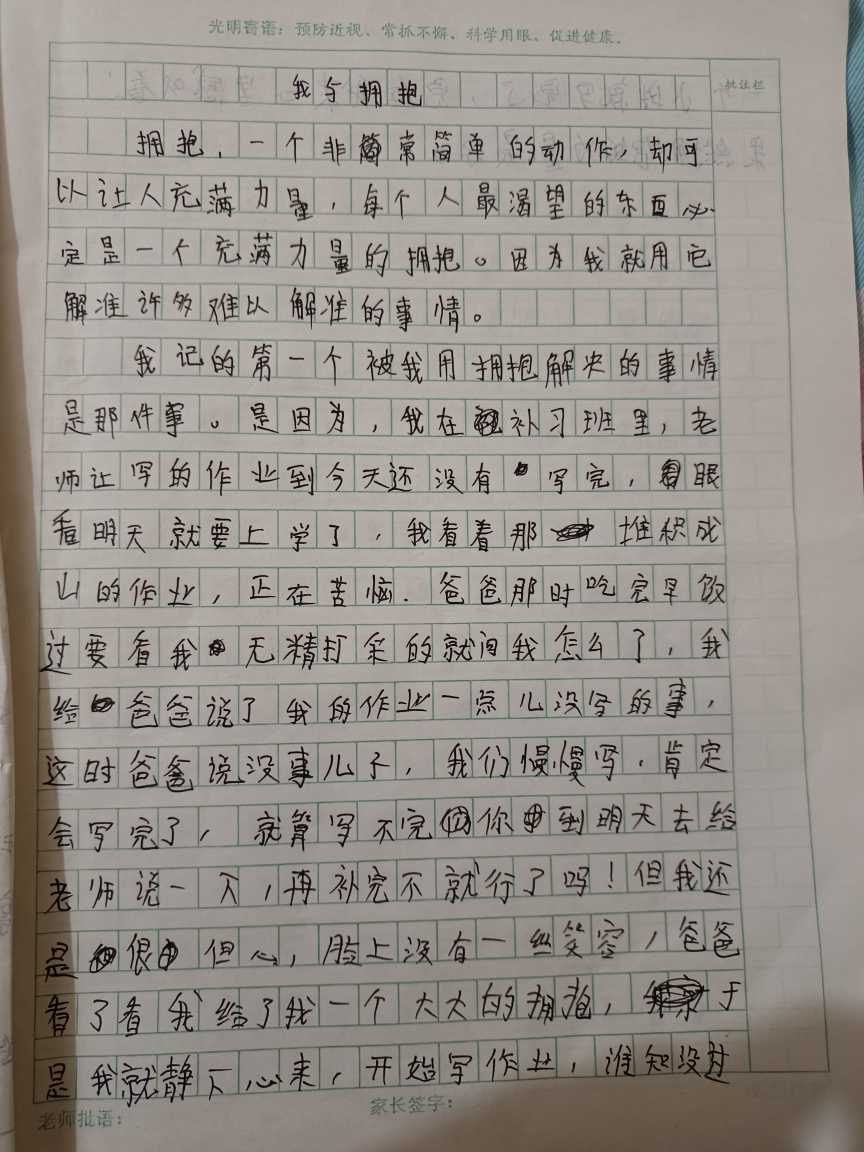 光明寄语：预防近视、常抓不懈、科学用眼、促进健康.
批注栏
我与拥抱
拥抱，一个非常简单的动作，却可
以让人充满力量，每个人最渴望的东西必
定是一个充满力量的拥抱。因为我就用它
解准许多难以解准的事情。
我记的第一个被我用拥抱解决的事情
是那件事。是因为，我在补习班里，老
师让写的作业到今天还没有写完，眼
看明天就要上学了，我看着那堆积成
山的作业，正在苦恼.爸爸那时吃完早饭
过要看我无精打采的就问我怎么了，我
给爸爸说了我的作业一点儿没写的事，
这时爸爸说没事儿子，我们慢慢写，肯定
会写完了，就算写不完你到明天去给
老师说一下，再补完不就行了吗！但我还
是很但心，脸上没有一丝笑容，爸爸
看了看我给了我一个大大的拥抱，于
是我就静下心来，开始写作业，谁知没过
老师批语：
家长签字：